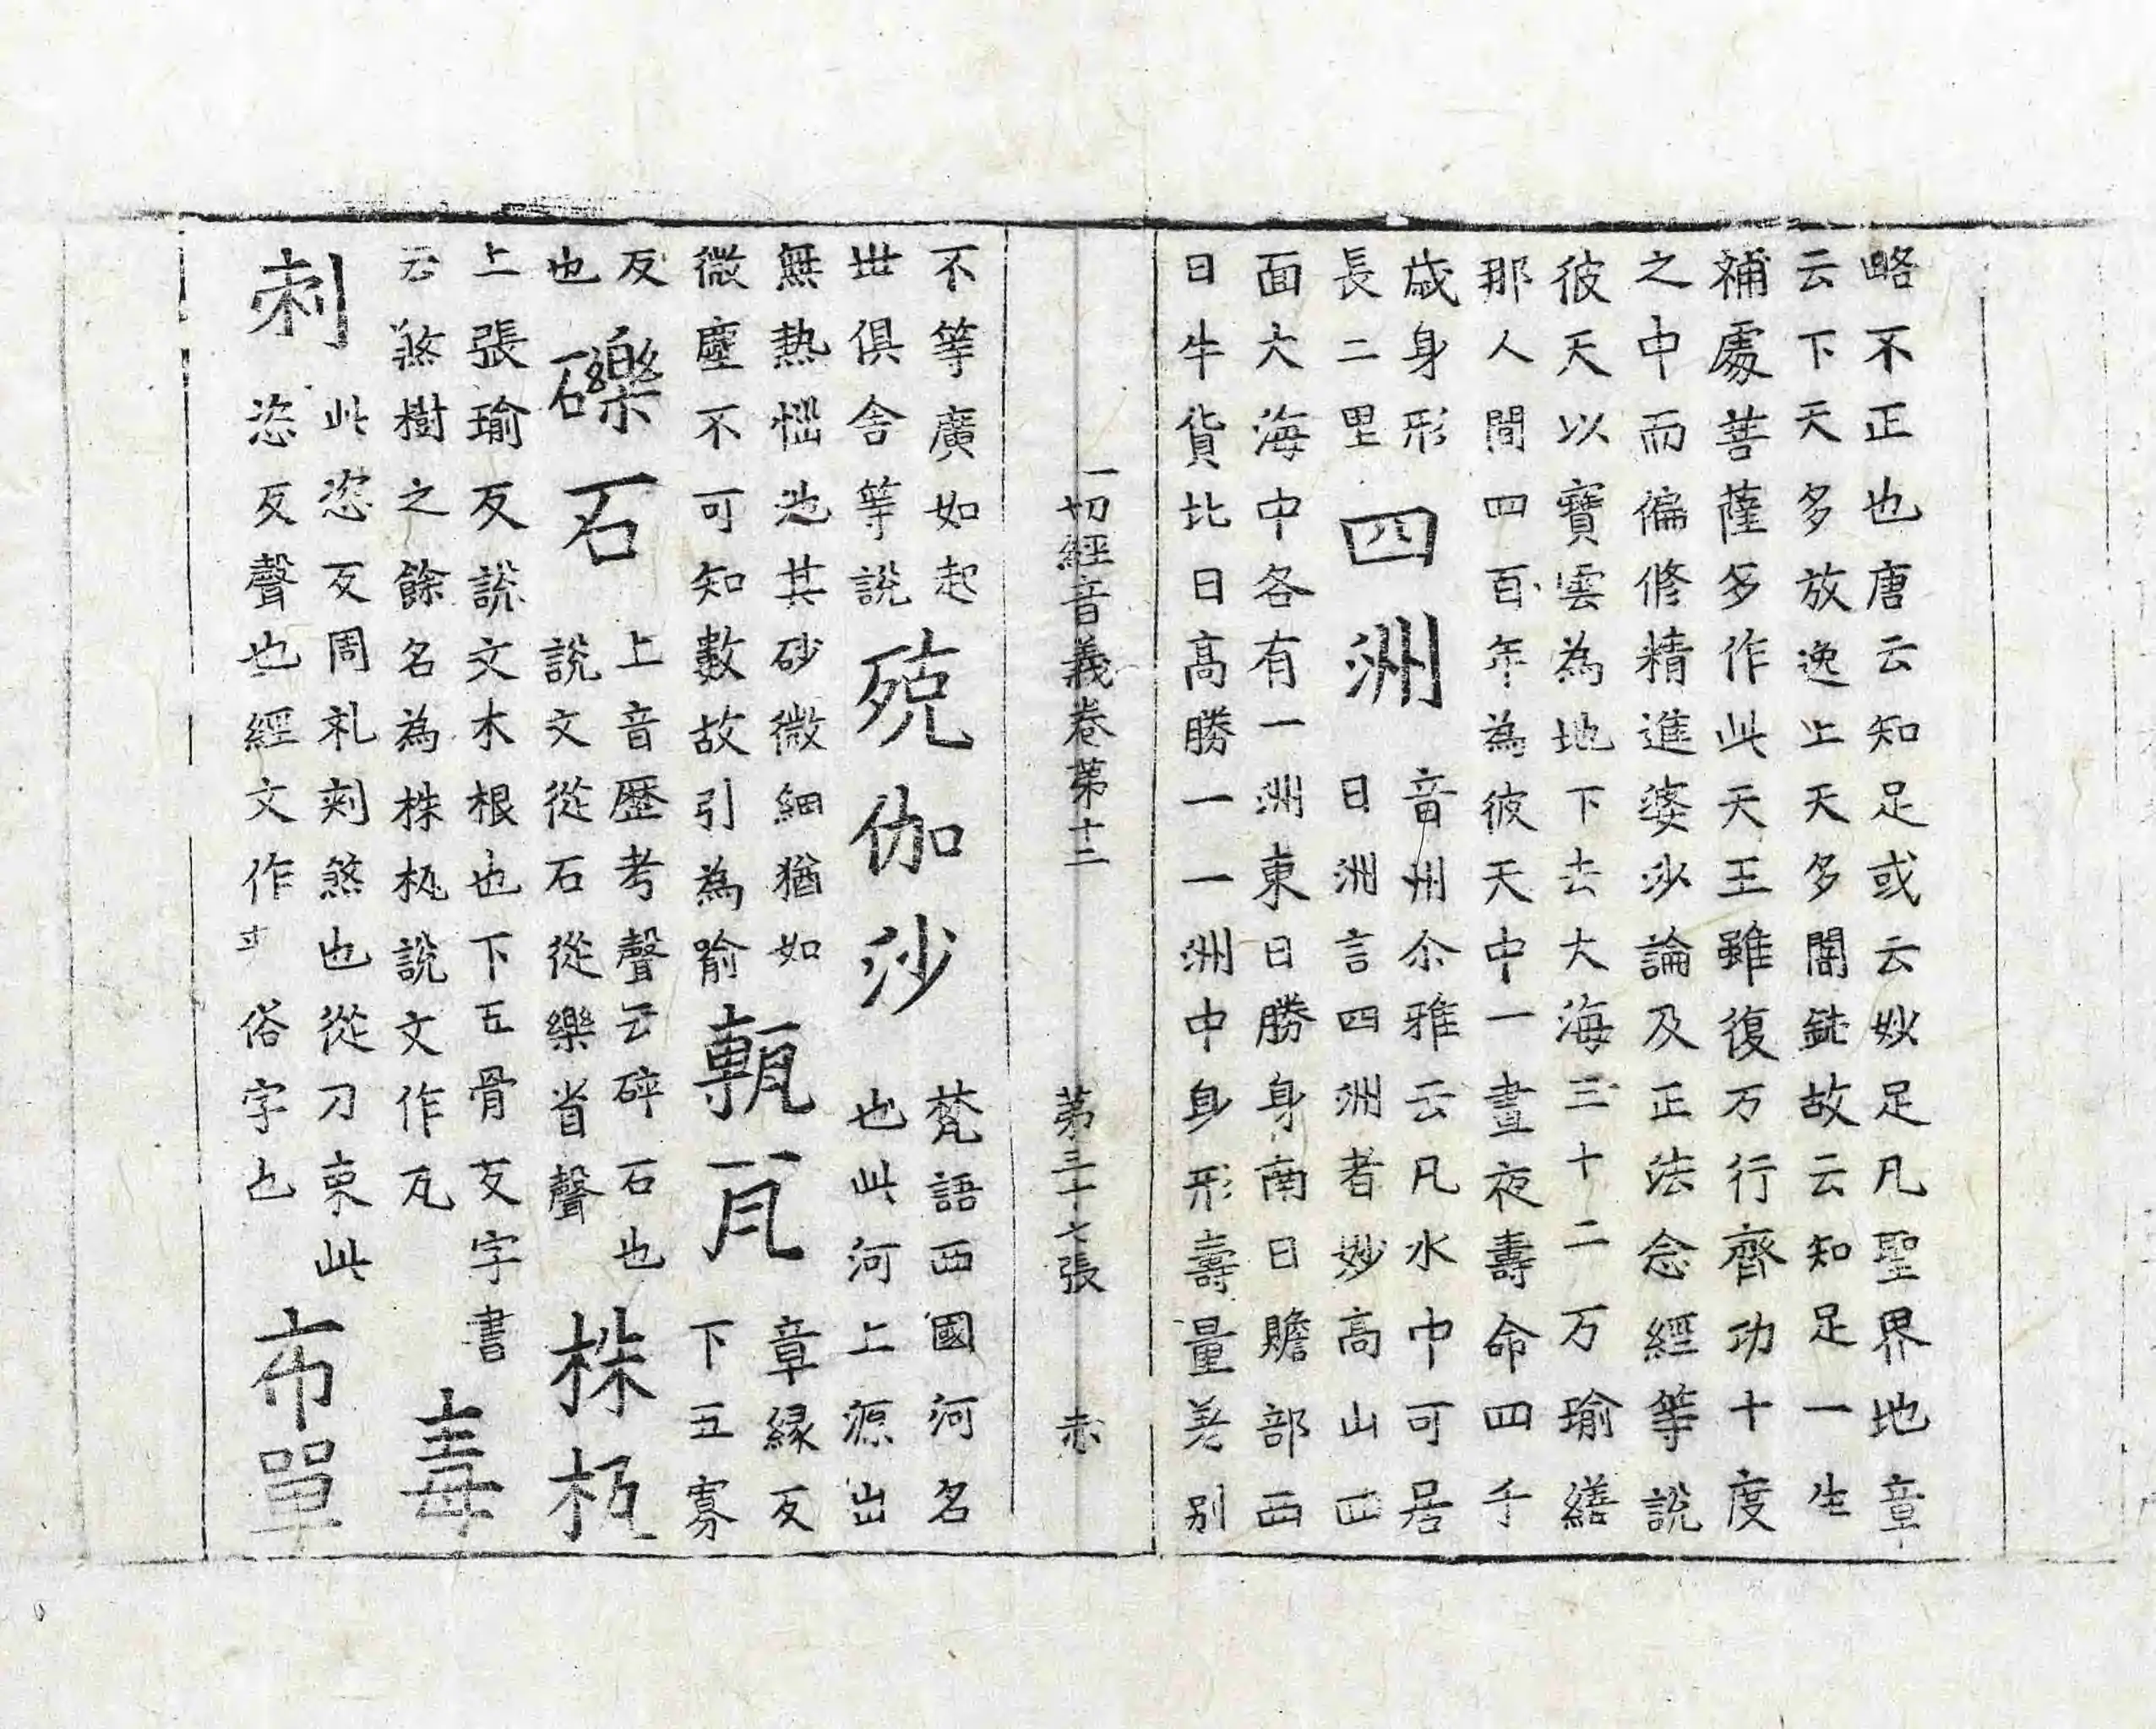 略不正也唐云知足或云妙足凡聖界地章
云下天多放逸上天多闇鈍故云知足一生
補處菩薩多作此天王雖復万行齊功十度
之中而偏修精進婆沙論及正法念經等說
彼天以寶雲為地下去大海三十二万瑜繕
那人間四百年為彼天中一晝夜壽命四千
歲身形
長二里
四洲
音州尒雅云凡水中可居
曰洲言四洲者妙高山四
面大海中各有一洲東曰勝身南曰贍部西
曰牛貨北曰高勝一一洲中身形壽量差別
一切經音義卷第十二 第三十七張 赤
不等廣如起
世俱舍等說
殑伽沙
梵語西國河名
也此河上源出
無熱惱池其砂微細猶如
微塵不可知數故引為喻
甎瓦
章縁反
下五寡
反
也
礫石
上音歷考聲云碎石也
說文從石從樂省聲
株杌
上張瑜反說文木根也下五骨反字書
云煞樹之餘名為株杌說文作兀
毒
刺
此恣反周礼刺煞也從刀朿此
恣反聲也經文作 俗字也
布單